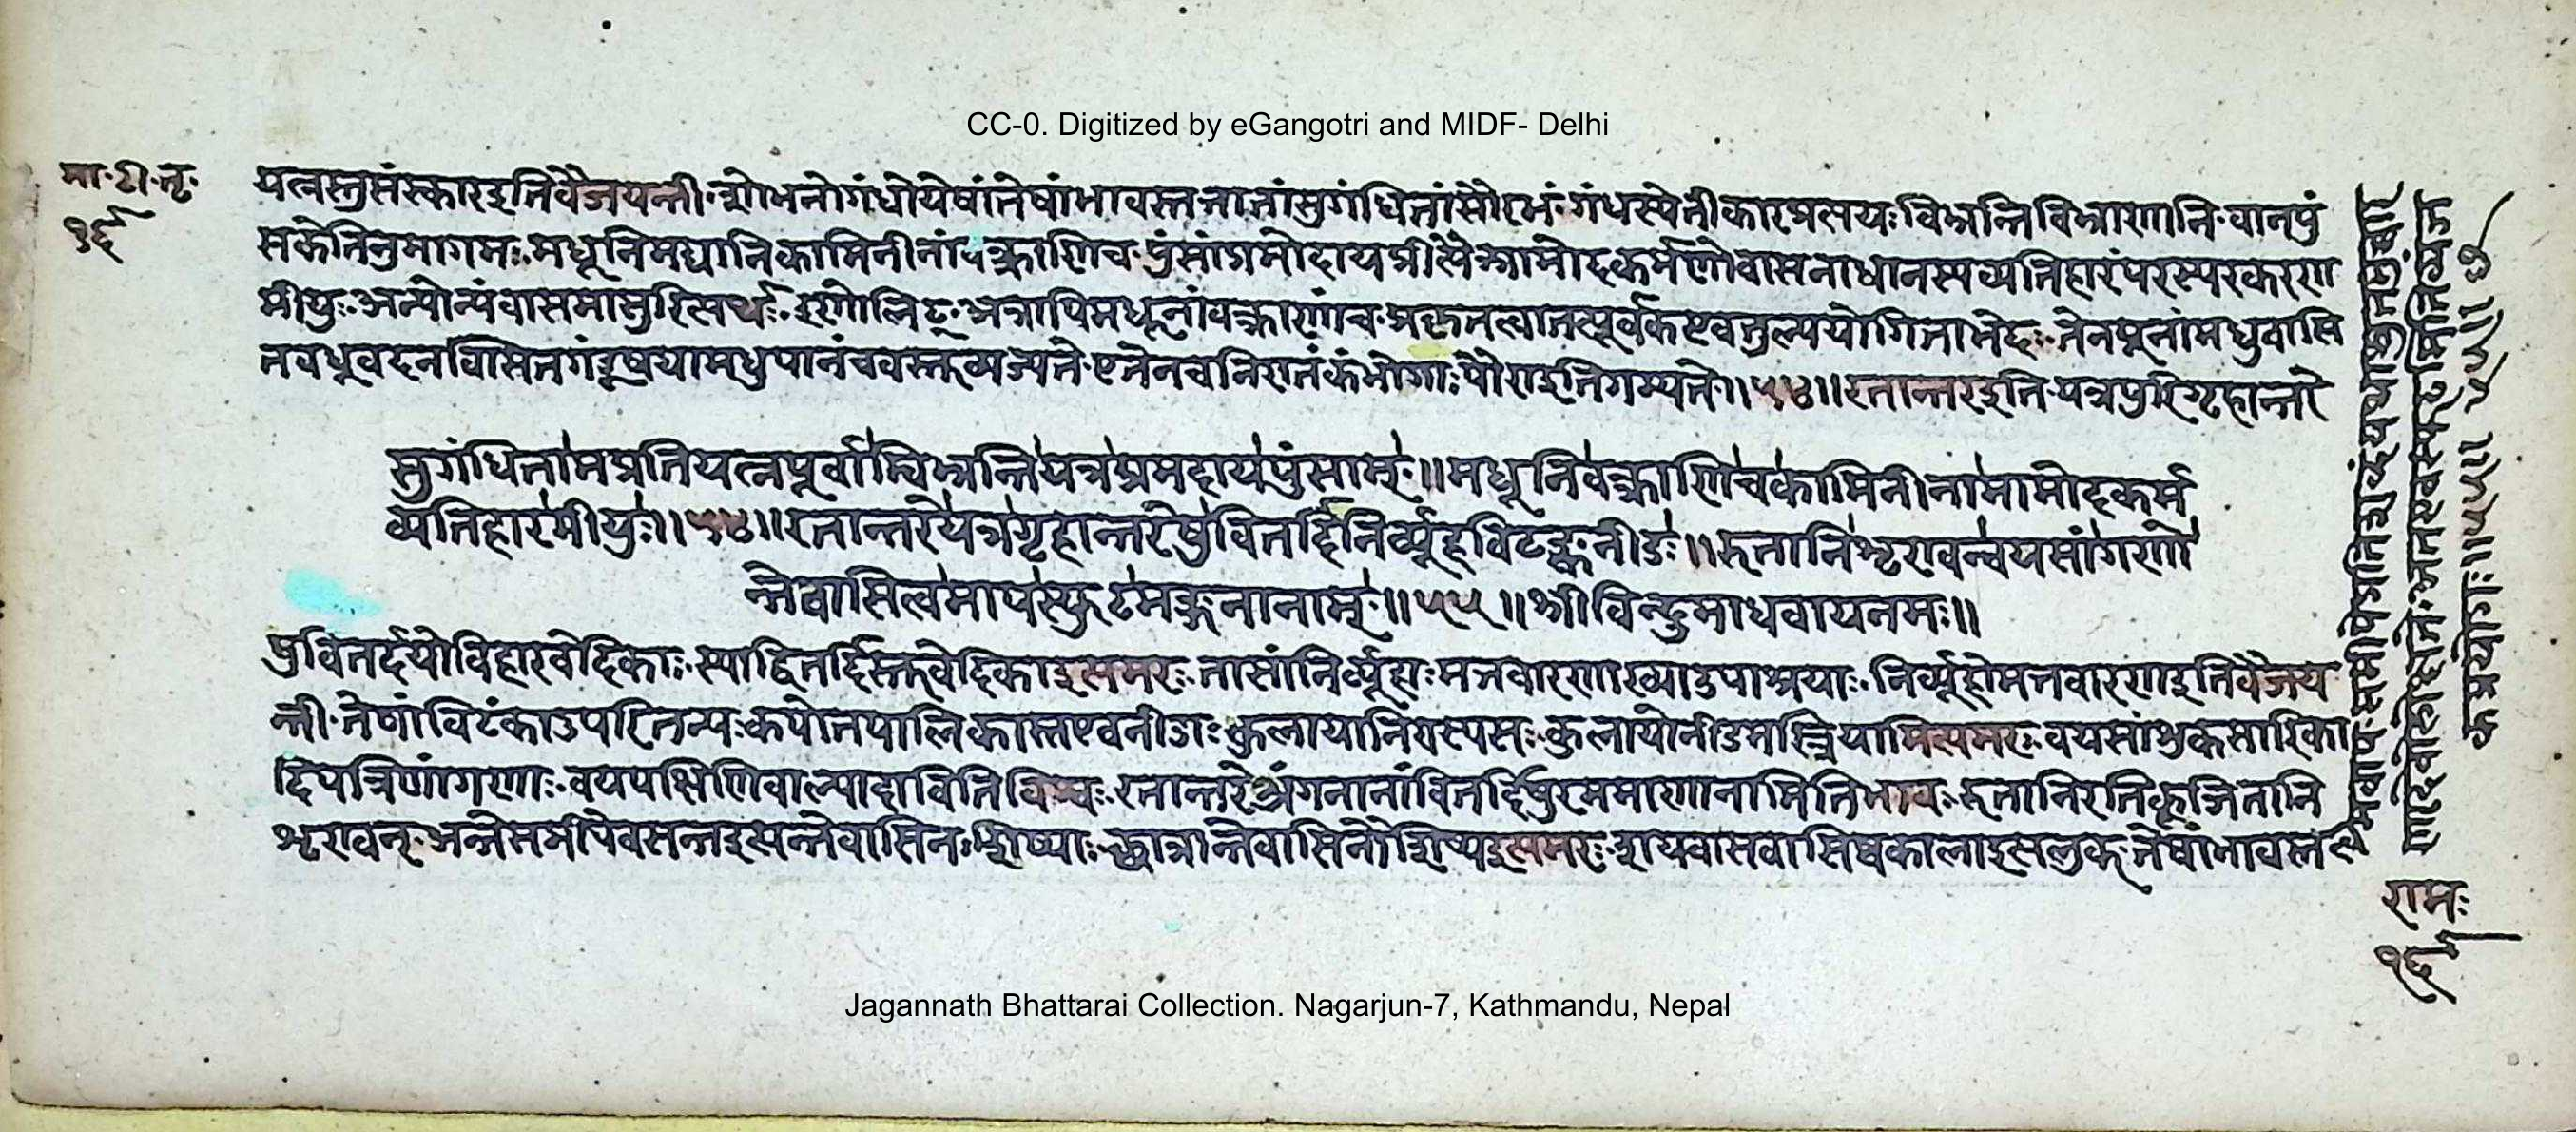 CC-0. Digitized by eGangotri and MIDF- Delhi
मा॰टी॰तृ॰
१६
यत्नस्तु संस्कार इति वैजयन्ती॰ शोभनो गंधो येषां तेषां भावस्तत्ता तां सुगंधितां सौरभं॰ गंधस्येतीकारः विभ्रन्ति विभ्राणानि॰ वा नपुं
सकेति नुमागमः॰ मधूनि मद्यानि कामिनीनां वक्त्राणि च॰ पुंसां प्रमोदाय प्रीत्यै आमोदकर्मणो वासनाधानस्य व्यतिहारं परस्परकरण
मीयुः॰ अन्योन्यं वासमासुरित्यर्थः॰ इणो लिट्॰ अत्रापि मधूनां वक्त्राणां च॰ प्रकृतत्वात् पूर्वक एव तुल्ययोगिता भेदः॰ तेन यूनां मधुवासि
तवधूवदन वासितगंडूषया मधुपानं च वस्तु व्यज्यते॰ एतेन च निरातंकं भोगाः पौरा इति गम्यते॥५४॥ रतान्तर इति॰ यत्र पुरि गृहान्तरे
सुगंधितामप्रतियत्नपूर्वां विभ्रन्ति यत्र प्रमदाय पुंसाम्॥ मधूनि वक्त्राणि च कामिनीनामामोदकर्म
व्यतिहारमीयुः॥५४॥ रतान्तरे यत्र गृहान्तरेषु वितर्दिनिर्व्यूहविटङ्कनीडः॥ रुतानि शृण्वन्वयसां गणो
न्तेवासित्वमाप स्फुटमङ्गनानाम्॥५५॥ श्रीविन्दुमाधवाय नमः॥
षु वितर्दयो विहारवेदिकाः॰ स्याद्वितर्दिस्तु वेदिका इत्यमरः॰ तासां निर्व्यूहाः मत्तवारणाख्या उपाश्रयाः॰ निर्व्यूहो मत्तवारण इति वैजय
न्ती॰ तेषां विटंका उपरितन्यः कपोतपालिकास्त एव नीडाः कुलाया नि यस्य सः॰ कुलायो नीडमस्त्रियामित्यमरः॰ वयसां शुकसारिका
दिपत्रिणां गणः॰ वयः पक्षिणि वाल्यादाविति विश्वः॰ रतान्तरे अंगनानां वितर्दिषु रममाणानामिति भावः॰ रुतानि रतिकूजितानि
शृण्वन्॰ अन्ते समीपे वसन्त इत्यन्तेवासिनः शिष्याः॰ छात्रान्तेवासिनौ शिष्य इत्यमरः॰ शयवासवासिष्वकालादित्यलुक्॰ तेषां भावस्त
रामः
१६
Jagannath Bhattarai Collection. Nagarjun-7, Kathmandu, Nepal